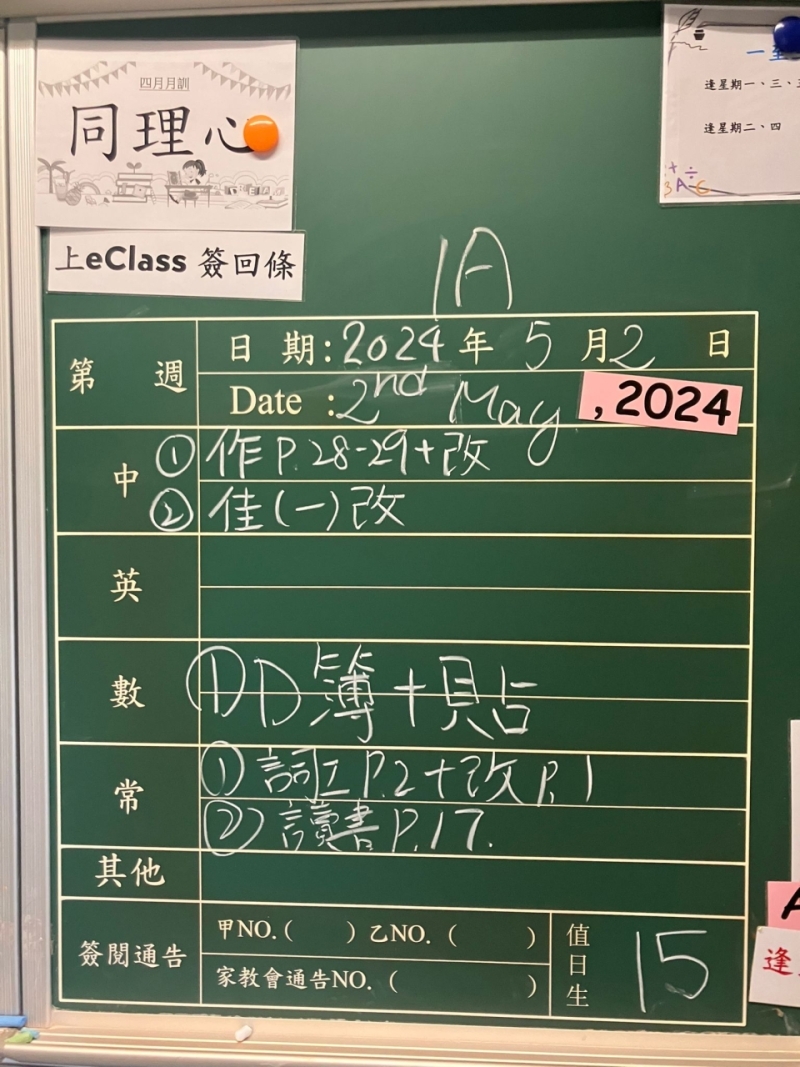 四月月訓
同理心
上eClass 簽回條
一至
逢星期一、三、五
逢星期二、四
1A
第 週
日 期:2024年 5 月 2 日
Date :2nd May , 2024
中
① 作 P.28-29+改
② 佳(一)改
英
數
① D簿+貼
常
① 詞工 P.2+改 P.1
② 讀書 P.17.
其他
簽閱通告
甲NO.( ) 乙NO. ( )
家教會通告NO. ( )
值日生
15
逢